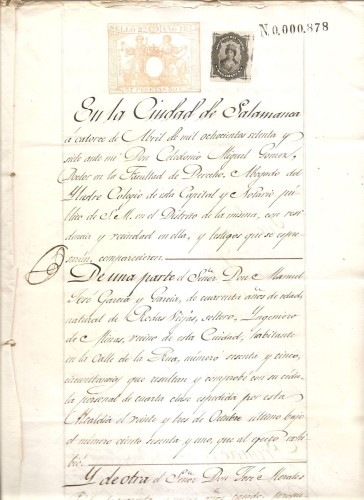 SELLO 2º AÑO 1877
N.0,000,878
En la Ciudad de Salamanca
á catorce de Abril de mil ochocientos setenta y
siete ante mi Don Celedonio Miguel Gomez,
Doctor en la Facultad de Derecho, Abogado del
Ylustre Colegio de esta Capital y Notario pú-
blico de S. M. en el Distrito de la misma, con resi-
dencia y vecindad en ella, y testigos que se espre-
sarán, comparecieron:
De una parte el Señor Don Manuel
José García y García, de cuarenta años de edad,
natural de Rodas Viejas, soltero, Yngeniero
de Minas, vecino de esta Ciudad, habitante
en la Calle de la Rua, número sesenta y cinco,
circunstancias que resultan y comprobé con su cédu-
la personal de cuarta clase espedida por esta
Alcaldía el veinte y tres de Octubre último bajo
el número ciento sesenta y uno, que al efecto exhi-
bió.
Y de otra el Señor Don José Morales